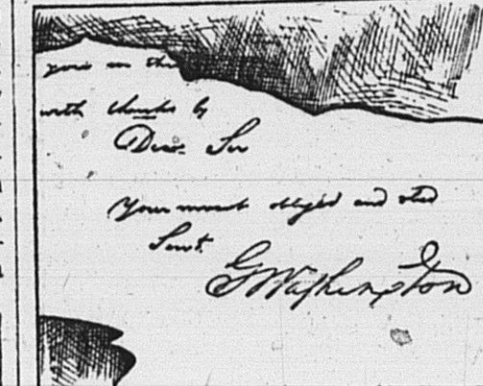 you in the
with thanks by
Dear Sir
Your most obliged and obed
Servt.
GWashington